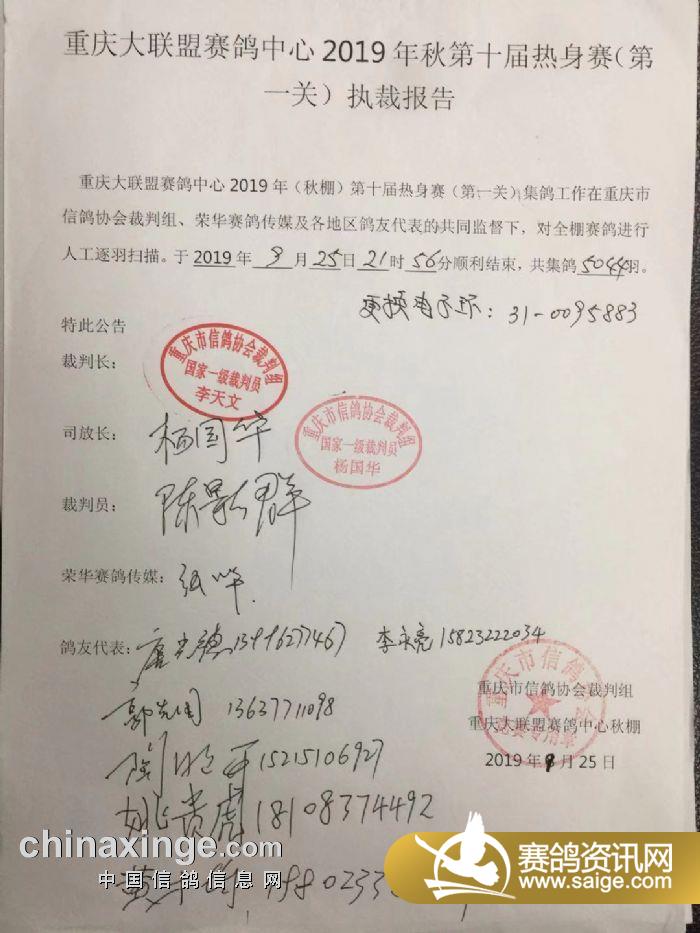 重庆大联盟赛鸽中心 2019 年秋第十届热身赛（第
一关）执裁报告
重庆大联盟赛鸽中心 2019 年（秋棚）第十届热身赛（第一关）集鸽工作在重庆市
信鸽协会裁判组、荣华赛鸽传媒及各地区鸽友代表的共同监督下，对全棚赛鸽进行
人工逐羽扫描。于 2019 年 9 月 25 日 21 时 56 分顺利结束，共集鸽 5044 羽。
更换电子环：31-0095883
特此公告
裁判长：
重庆市信鸽协会裁判组
国家一级裁判员
李天文
司放长：杨国华
重庆市信鸽协会裁判组
国家一级裁判员
杨国华
裁判员：陈
群
荣华赛鸽传媒：
鸽友代表：唐
德 李永亮 15823222034
郭 13637711098
15215106927
姚贵虎 18108374492
黄
重庆市信鸽协会
重庆市信鸽协会裁判组
重庆大联盟赛鸽中心秋棚
2019 年 9 月 25 日
chinaxinge.com
中国信鸽信息网
赛鸽资讯网
www.saige.com